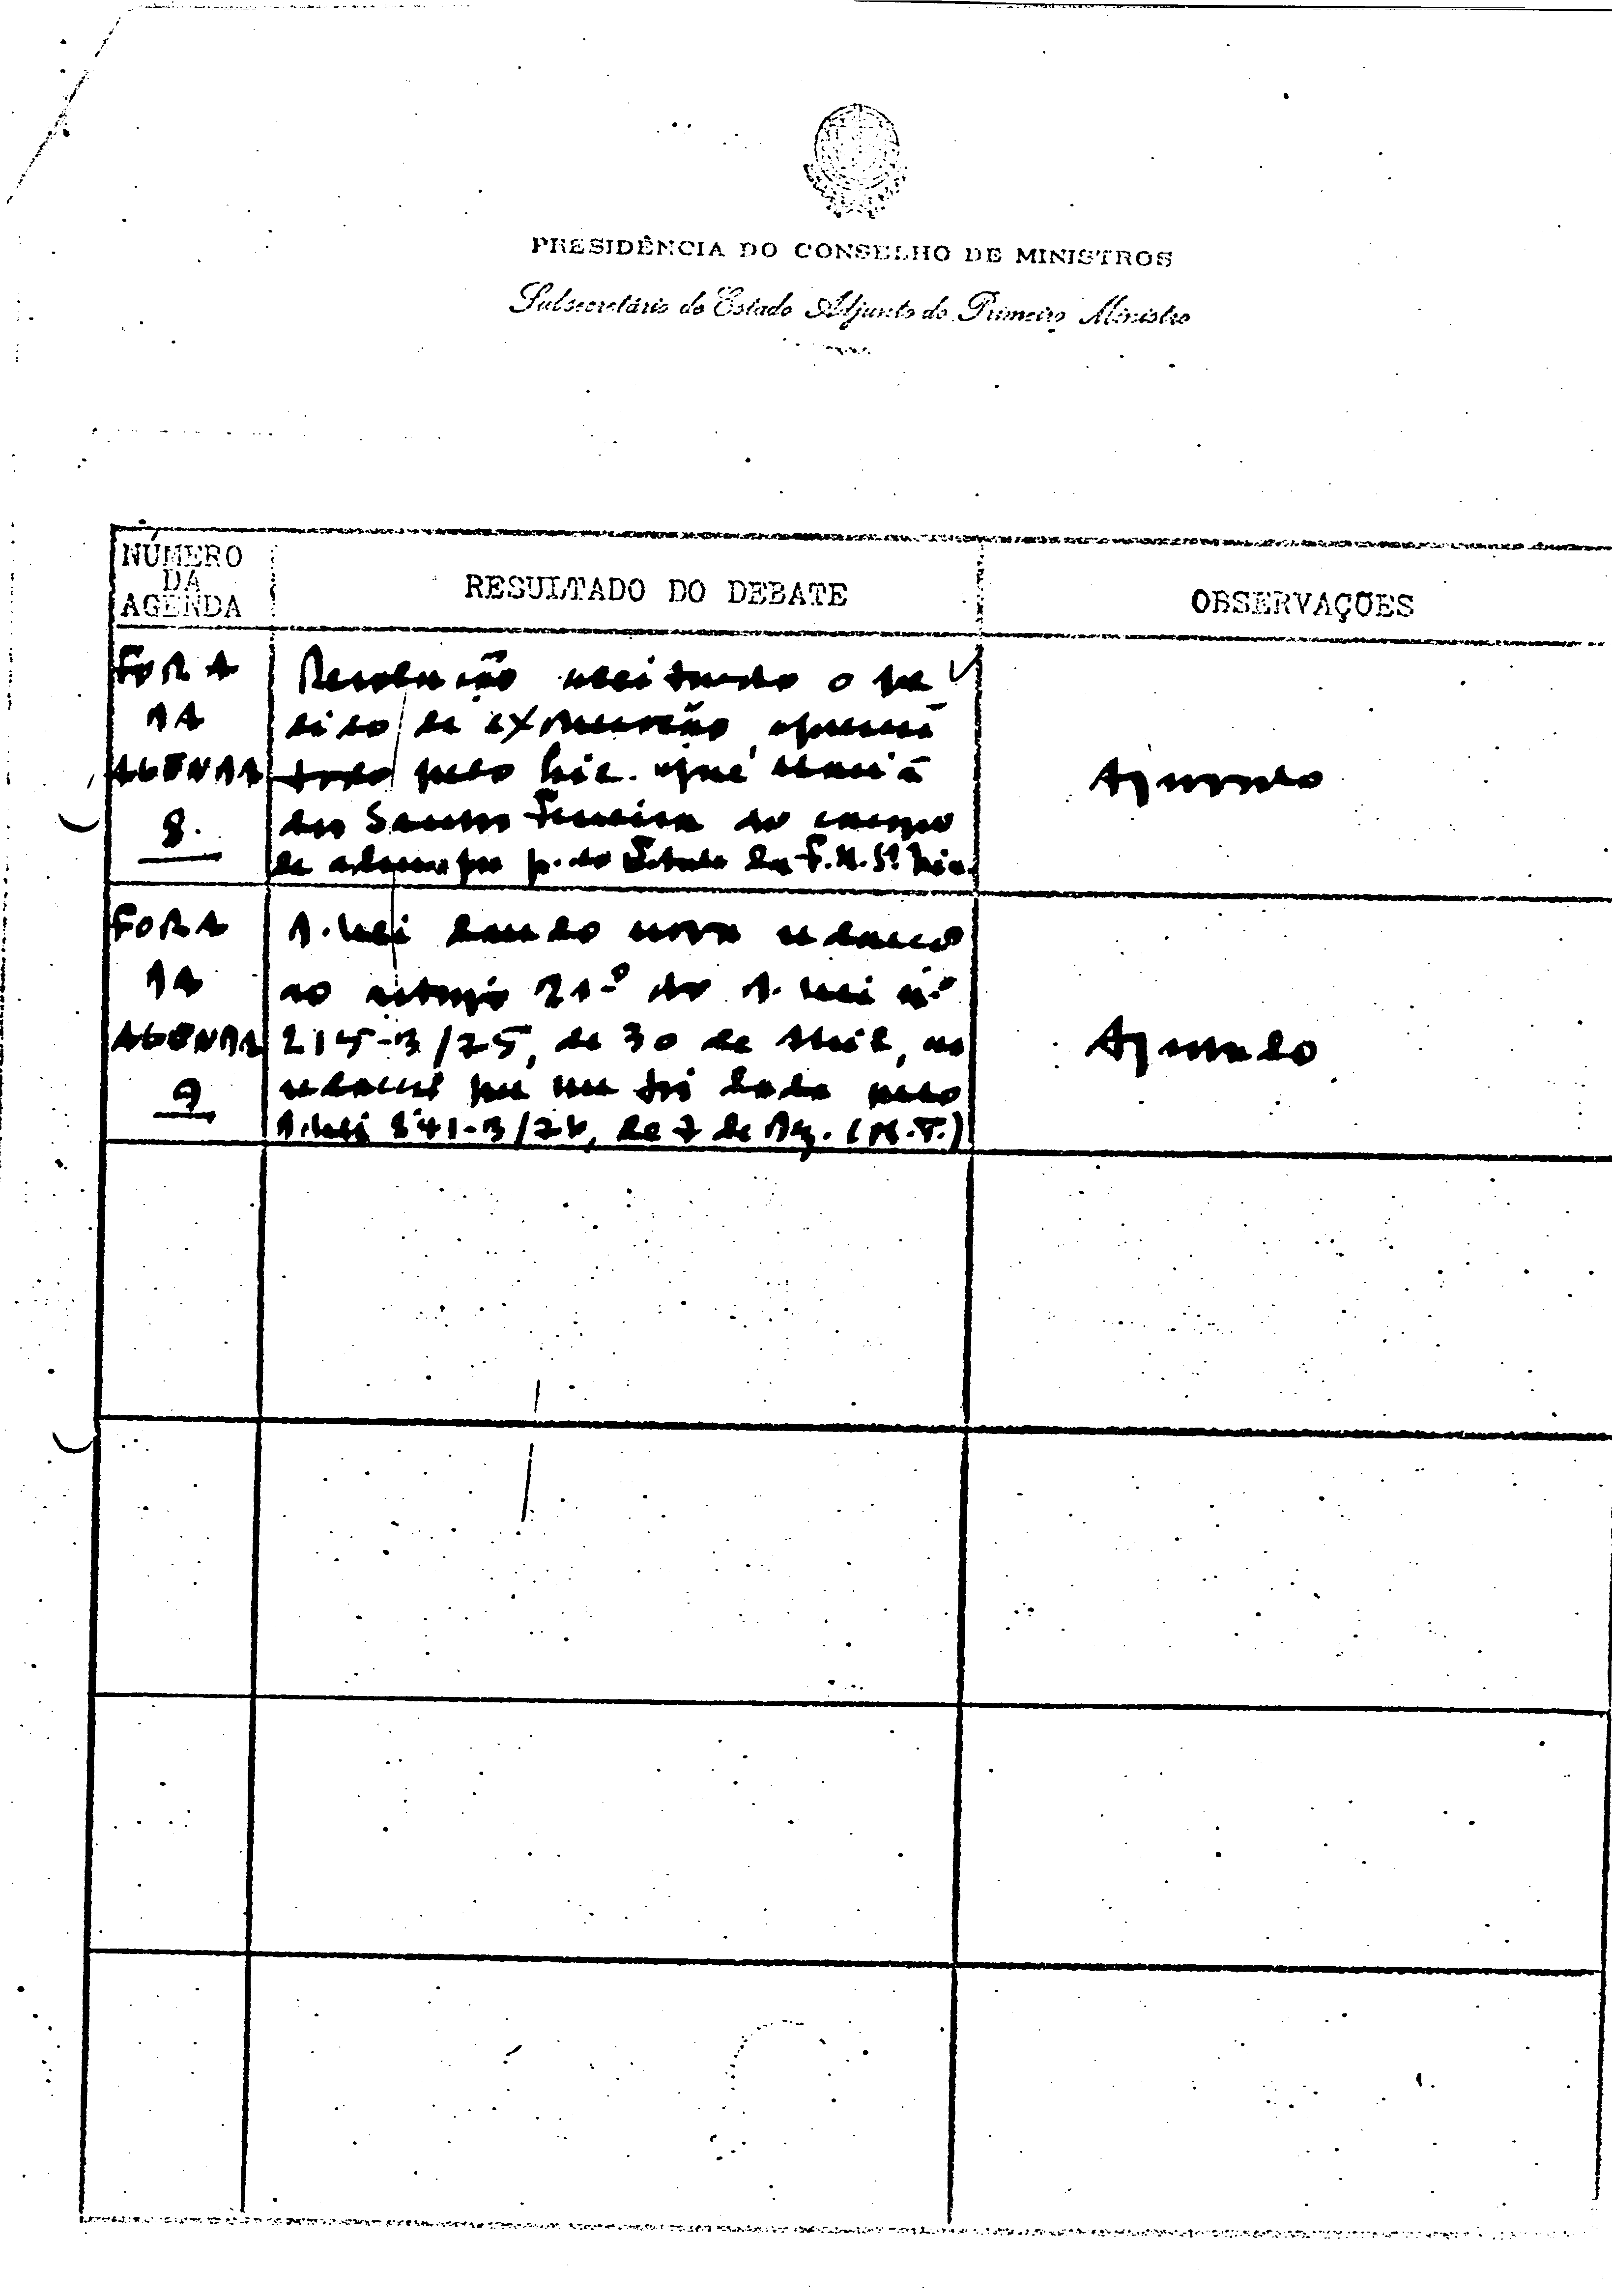 PRESIDÊNCIA DO CONSELHO DE MINISTROS
Subsecretário de Estado Adjunto do Primeiro Ministro
NÚMERO
DA
AGENDA
RESULTADO DO DEBATE
OBSERVAÇÕES
FORA
DA
AGENDA
8.
Resolução aceitando o pe
dido de exoneração apresen
tado pelo Lic. José
dos Santos Ferreira do cargo
de por p. do Estado da F.N.
Aprovado
FORA
DA
AGENDA
9
D. Lei dando nova redacção
ao artigo 21.º do D. Lei n.º
215-B/75, de 30 de Abril, na
redacção que lhe foi dada pelo
D. Lei 841-B/76, de 7 de Dez. (M.T.)
Aprovado